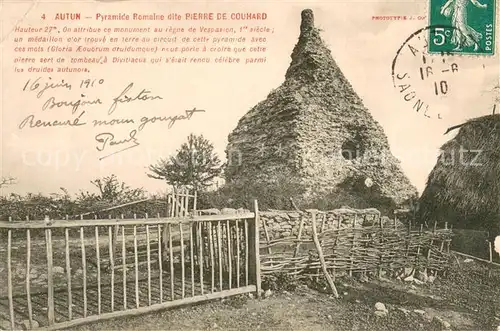 4 AUTUN - Pyramide Romaine dite PIERRE DE COUHARD
PHOTOTYPIE J. C
Hauteur 27m. On attribue ce monument au règne de Vespasien, 1er siècle;
un médaillon d'or trouvé en terre au circuit de cette pyramide avec
ces mots (Gloria Æduorum druidumque) nous porte à croire que cette
pierre sert de tombeau à Divitiacus qui s'était rendu célèbre parmi
les druides autunois.
16 juin 1910
Bonjour
Paul
5c
10
SAONE